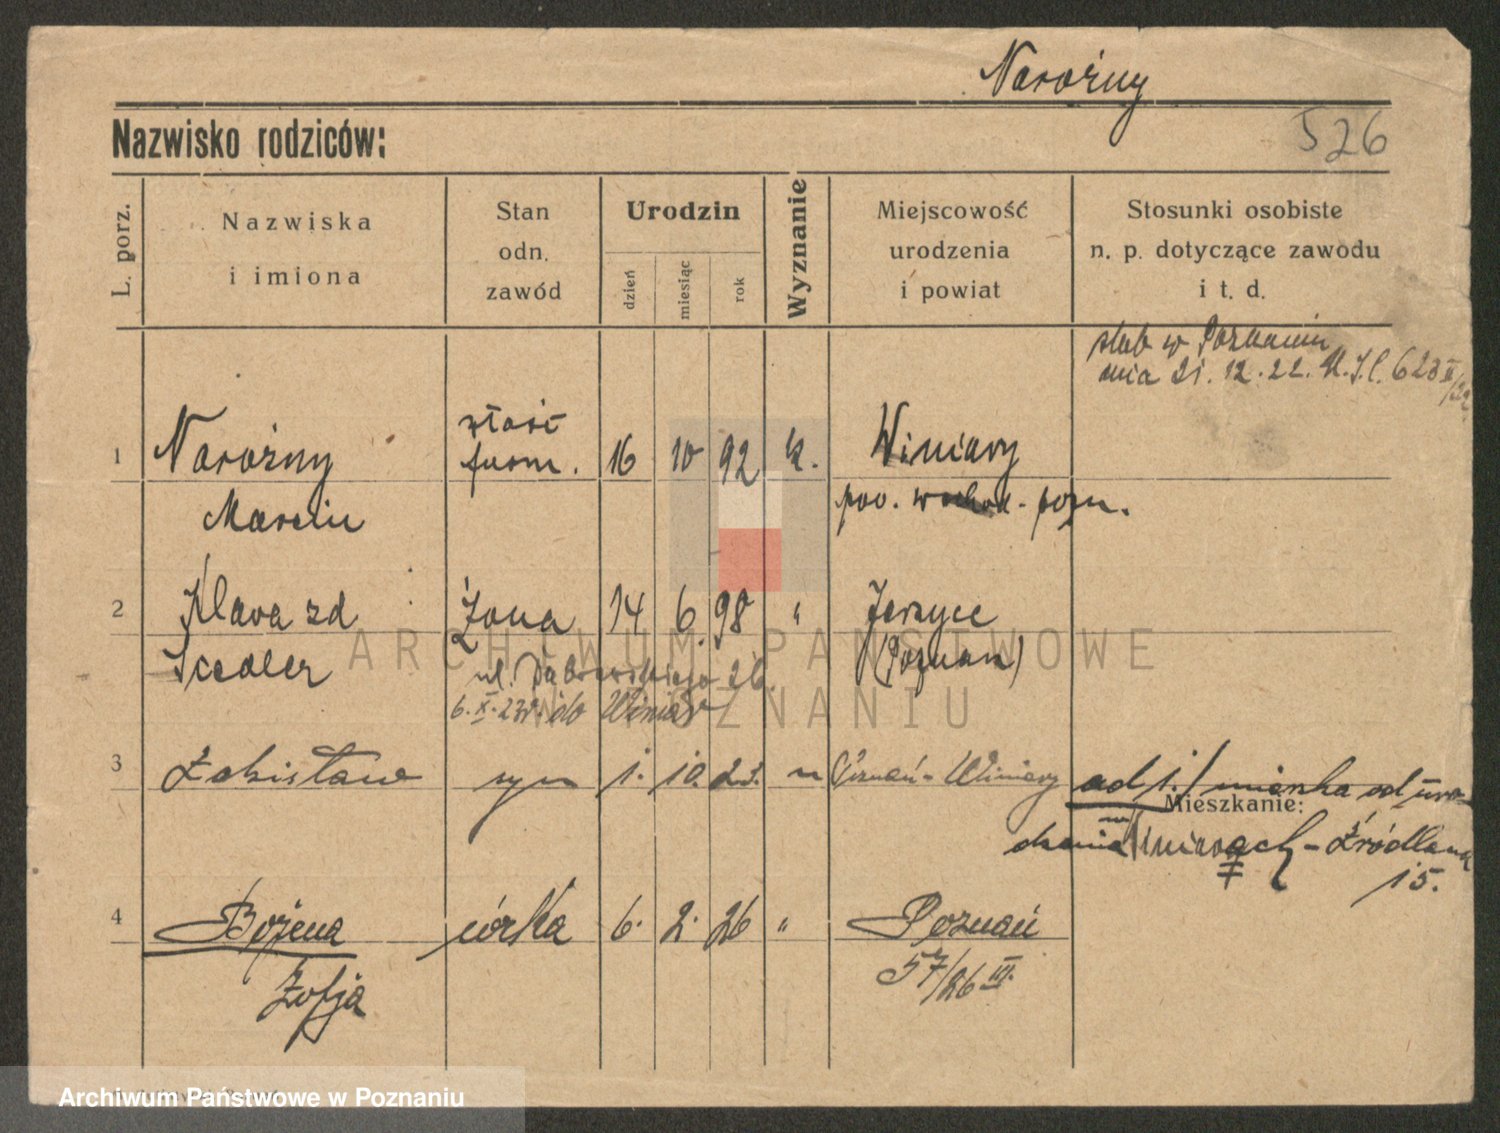 Narożny
Nazwisko rodziców:
526
L. porz.
Nazwiska
i imiona
Stan
odn.
zawód
Urodzin
dzień
miesiąc
rok
Wyznanie
Miejscowość
urodzenia
i powiat
Stosunki osobiste
n. p. dotyczące zawodu
i t. d.
ślub w Poznaniu
dnia 21. 12. 22.
1 Narożny 16 10 92 k. Winiary
Marcin
pow. wschod. pozn.
2 Klara zd Żona 14 6. 98 " Jerzyce
Siedler (Poznań)
ul. Dąbrowskiego 26.
6. X. 23r. do Winiar
3 syn 1. 10. 23. Poznań - Winiary
ad 1./ mieszka od uro-
Mieszkanie:
dzenia w Winiarach - Źródlana
15.
4 Bożena córka 6. 2. 26 " Poznań
Zofja 57/26 III.
ARCHIWUM PAŃSTWOWE
W POZNANIU
Archiwum Państwowe w Poznaniu